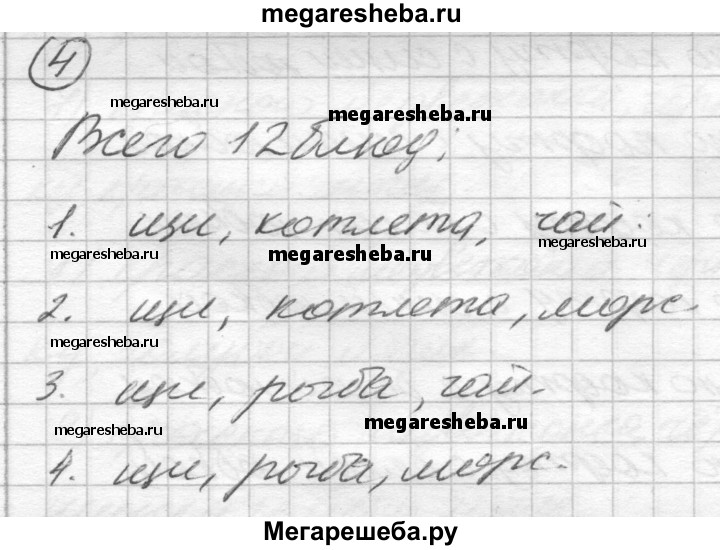 megaresheba.ru
4
megaresheba.ru
megaresheba.ru
Всего 12 блюд;
1. щи, котлета, чай.
megaresheba.ru
megaresheba.ru
megaresheba.ru
2. щи, котлета, морс
megaresheba.ru
3. щи, рыба, чай.
megaresheba.ru
megaresheba.ru
4. щи, рыба, морс.
Мегарешеба.ру